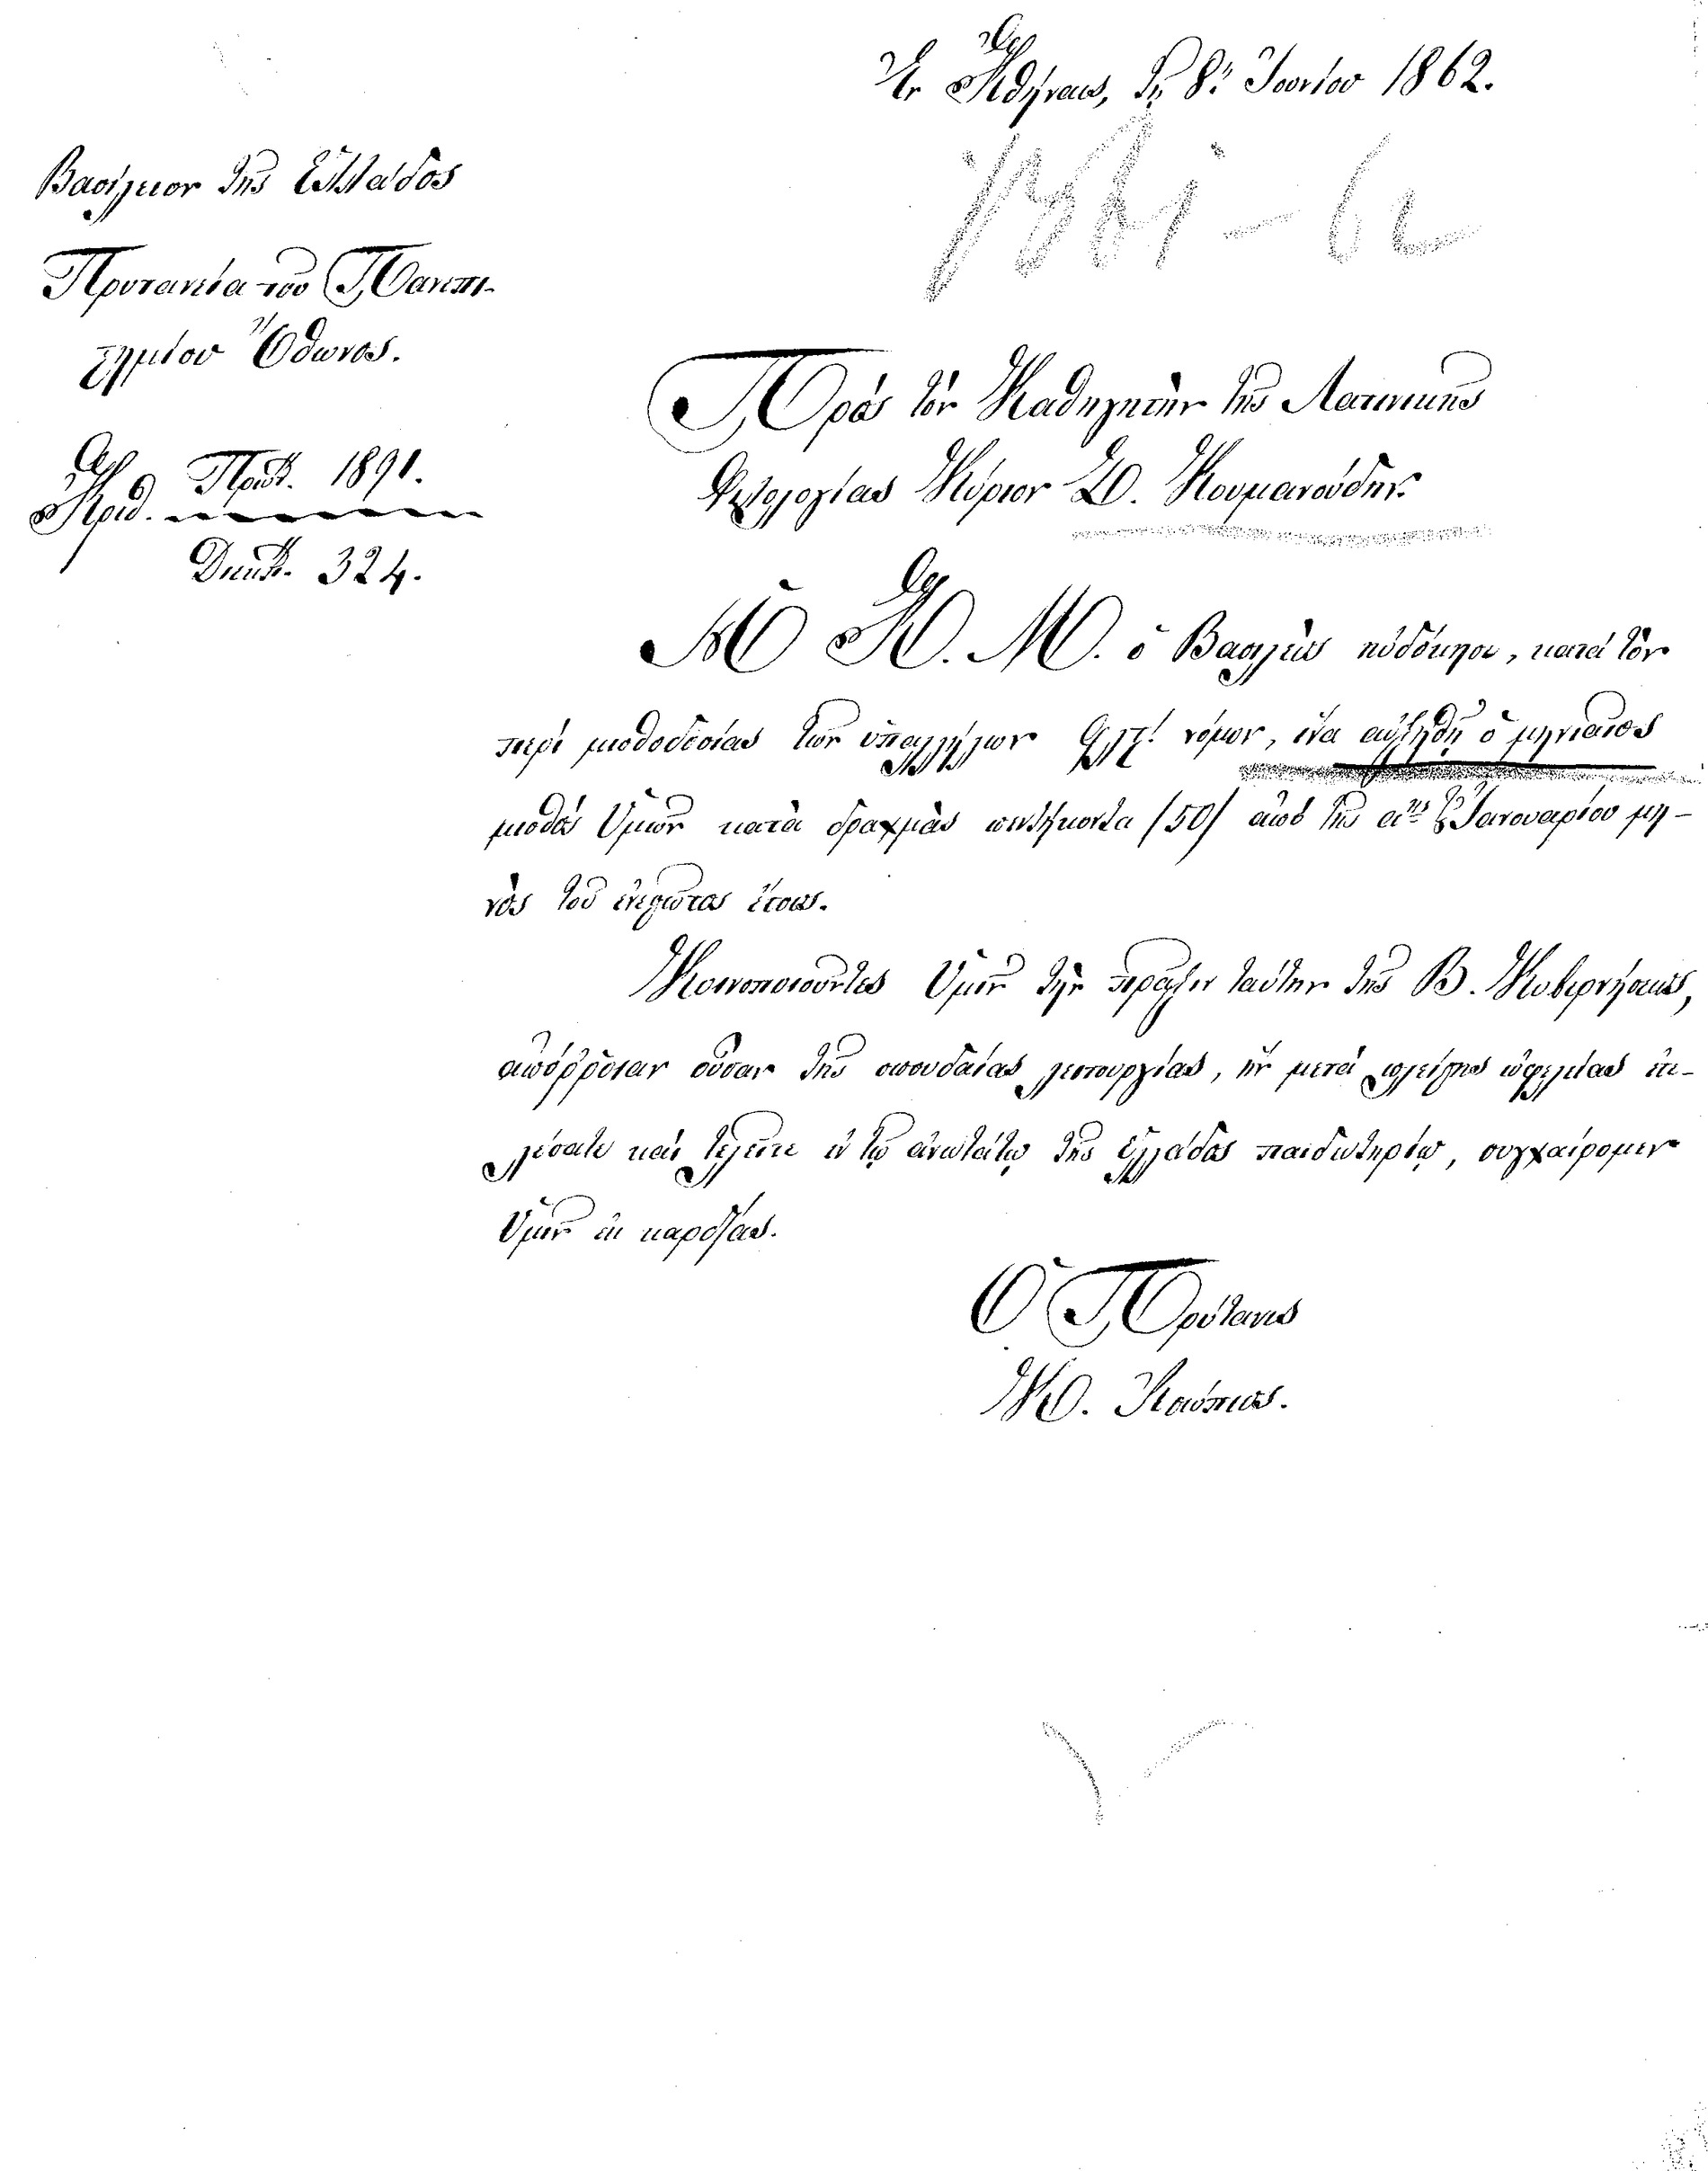 Ἐν Ἀθήναις, τῇ 8ῃ Ἰουνίου 1862.
1861-62
Βασίλειον τῆς Ἑλλάδος
Πρυτανεία τοῦ Πανεπι-
στημίου Ὄθωνος.
Ἀριθ. Πρωτ. 1891.
Διεκπ. 324.
Πρὸς τὸν Καθηγητὴν τῆς Λατινικῆς
Φιλολογίας Κύριον Σ. Κουμανούδην.
Ἡ Α. Μ. ὁ Βασιλεὺς ηὐδόκησε, κατὰ τὸν
περὶ μισθοδοσίας τῶν ὑπαλλήλων νόμον, ἵνα αὐξηθῇ ὁ μηνιαῖος
μισθὸς Ὑμῶν κατὰ δραχμὰς πεντήκοντα /50/ ἀπὸ τῆς αης Ἰανουαρίου μη-
νὸς τοῦ ἐνεστῶτος ἔτους.
Κοινοποιοῦντες Ὑμῖν τὴν πρᾶξιν ταύτην τῆς Β. Κυβερνήσεως,
ἀπόῤῥοιαν οὖσαν τῆς σπουδαίας λειτουργίας, ἣν μετὰ πλείστης ὠφελείας ἐτε-
λέσατε καὶ τελεῖτε ἐν τῷ ἀνωτάτῳ τῆς Ἑλλάδος παιδευτηρίῳ, συγχαίρομεν
Ὑμῖν ἐκ καρδίας.
Ὁ Πρύτανις